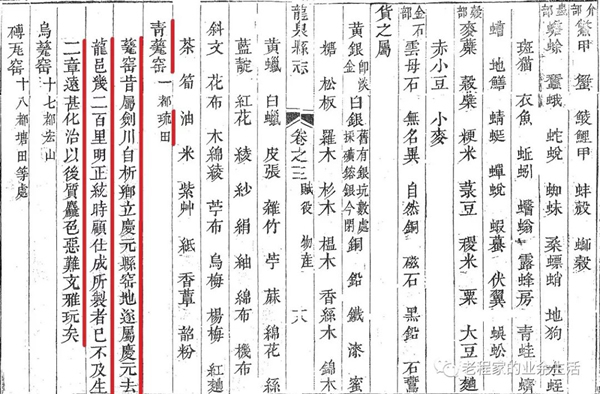 介部 鼈甲 蟹 鯪鯉甲 蚌殼 螄殼
蟲部 蟾蜍 蠶蛾 蛇蛻 蜘蛛 桑螵蛸 地狗 水蛭
斑猫 衣魚 蚯蚓 蠮螉 露蜂房 青蛙
地鱔 蜻蜓 蟬蛻 蝦蟇 伏翼 蜈蚣
穀部 麥蘗 穀蘗 粳米 菉豆 稷米 粟 大豆 麯
赤小豆 小麥
金石部 雲母石 無名異 自然銅 磁石 黑鉛 石鷰
貨之屬
黃銀 卽淡金 白銀 舊有銀坑數處採礦鎔銀今閉 銅 鉛 鐵 漆 蜜
糖 松板 羅木 杉木 榅木 香絲木 錦木
龍泉縣志 卷之三 賦役 物產 十八
黃蠟 白蠟 皮張 雜竹 苧 蔴 綿花 絲
藍靛 紅花 綾 紗 絹 紬 綿布 機布
斜文 花布 木綿綾 苧布 烏梅 楊梅 紅麯
茶 筍 油 米 紫艸 紙 香蕈 韶粉
青甆窑 一都琉田
甆窑昔屬劍川自析鄉立慶元縣窑地遂屬慶元去
龍邑幾二百里明正統時顧仕成所製者已不及生
二章遠甚化治以後質麤色惡難充雅玩矣
烏甆窑 十七都宏山
磚瓦窑 十八都塘田等處
老程家的业余生活